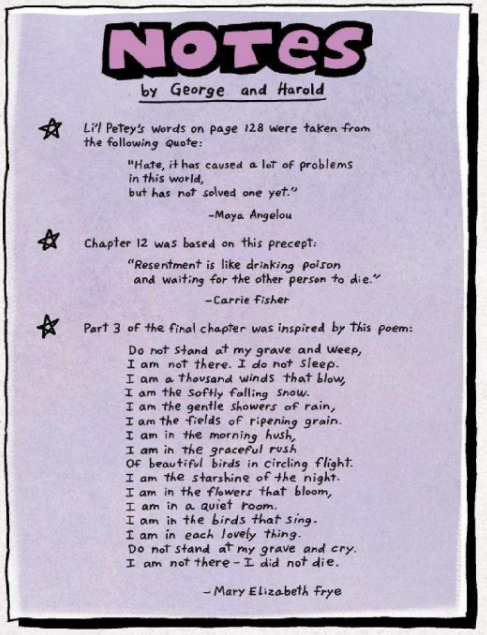 NOTES
by George and Harold
Li'l Petey's words on page 128 were taken from
the following quote:
"Hate, it has caused a lot of problems
in this world,
but has not solved one yet."
-Maya Angelou
Chapter 12 was based on this precept:
"Resentment is like drinking poison
and waiting for the other person to die."
-Carrie Fisher
Part 3 of the final chapter was inspired by this poem:
Do not stand at my grave and weep,
I am not there. I do not sleep.
I am a thousand winds that blow,
I am the softly falling snow.
I am the gentle showers of rain,
I am the fields of ripening grain.
I am in the morning hush,
I am in the graceful rush
Of beautiful birds in circling flight.
I am the starshine of the night.
I am in the flowers that bloom,
I am in a quiet room.
I am in the birds that sing.
I am in each lovely thing.
Do not stand at my grave and cry.
I am not there - I did not die.
- Mary Elizabeth Frye